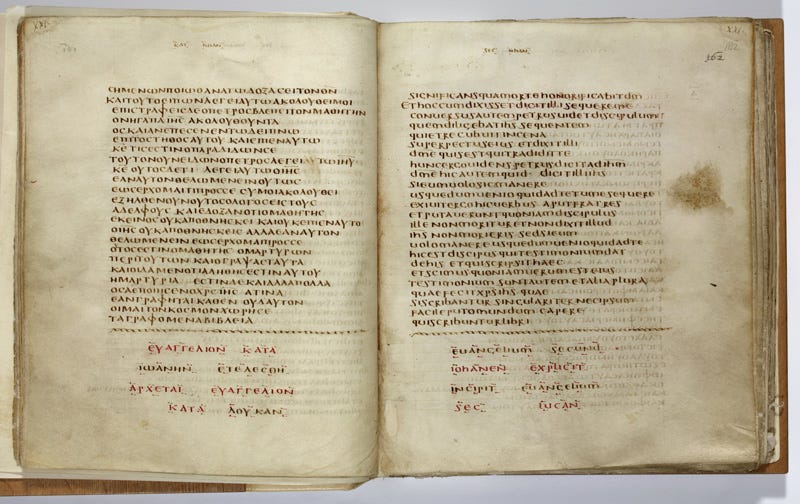 ϹΗΜΕΝΩΝΠΟΙΩΘΑΝΑΤΩΔΟΞΑϹΕΙΤΟΝΘΝ
ΚΑΙΤΟΥΤΟΕΙΠΩΝΛΕΓΕΙΑΥΤΩΑΚΟΛΟΥΘΕΙΜΟΙ
ΕΠΙϹΤΡΑΦΕΙϹΔΕΟΠΕΤΡΟϹΒΛΕΠΕΙΤΟΝΜΑΘΗΤΗΝ
ΟΝΗΓΑΠΑΙΗϹ ΑΚΟΛΟΥΘΟΥΝΤΑ
ΟϹΚΑΙΑΝΕΠΕϹΕΝΕΝΤΩΔΕΙΠΝΩ
ΕΠΙΤΟϹΤΗΘΟϹΑΥΤΟΥ ΚΑΙΕΙΠΕΝΑΥΤΩ
ΚΕΤΙϹΕϹΤΙΝΟΠΑΡΑΔΙΔΩΝϹΕ
ΤΟΥΤΟΝΟΥΝΕΙΔΩΝΟΠΕΤΡΟϹΛΕΓΕΙΑΥΤΩΙΗΥ
ΚΕΟΥΤΟϹΔΕΤΙ ΛΕΓΕΙΑΥΤΩΟΙΗϹ
ΕΑΝΑΥΤΟΝΘΕΛΩΜΕΝΕΙΝΟΥΤΩϹ
ΕΩϹΕΡΧΟΜΑΙΤΙΠΡΟϹϹΕ ϹΥΜΟΙΑΚΟΛΟΥΘΕΙ
ΕΞΗΛΘΕΝΟΥΝΟΥΤΟϹΟΛΟΓΟϹΕΙϹΤΟΥϹ
ΑΔΕΛΦΟΥϹ ΚΑΙΕΔΟΞΑΝΟΤΙΟΜΑΘΗΤΗϹ
ΕΚΕΙΝΟϹΟΥΚΑΠΟΘΝΗϹΚΕΙ ΚΑΙΟΥΚΕΙΠΕΝΑΥΤΟ
ΟΙΗϹΟΥΚΑΠΟΘΝΗϹΚΕΙϹ ΑΛΛΑΕΑΝΑΥΤΟΝ
ΘΕΛΩΜΕΝΕΙΝΕΩϹΕΡΧΟΜΑΙΠΡΟϹϹΕ
ΟΥΤΟϹΕϹΤΙΝΟΜΑΘΗΤΗϹ ΟΜΑΡΤΥΡΩΝ
ΠΕΡΙΤΟΥΤΩΝ ΚΑΙΟΓΡΑΨΑϹΤΑΥΤΑ
ΚΑΙΟΙΔΑΜΕΝΟΤΙΑΛΗΘΗϹΕϹΤΙΝΑΥΤΟΥ
ΗΜΑΡΤΥΡΙΑ ΕϹΤΙΝΔΕΚΑΙΑΛΛΑΠΟΛΛΑ
ΟϹΑΕΠΟΙΗϹΕΝΟΧΡϹΙΗϹ ΑΤΙΝΑ
ΕΑΝΓΡΑΦΗΤΑΙΚΑΘΕΝ ΟΥΔΑΥΤΟΝ
ΟΙΜΑΙΤΟΝΚΟϹΜΟΝΧΩΡΗϹΕ
ΤΑΓΡΑΦΟΜΕΝΑΒΙΒΛΕΙΑ
ΕΥΑΓΓΕΛΙΟΝ ΚΑΤΑ
ΙΩΑΝΗΝ ΕΤΕΛΕϹΘΗ
ΑΡΧΕΤΑΙ ΕΥΑΓΓΕΛΙΟΝ
ΚΑΤΑ ΛΟΥΚΑΝ
162
significansquamortehonorificabitdm
Ethoccumdixissetdicitillisequereme
conuersusautempetrusuidetdiscipulum
quemdiligebatihs sequentem
quietrecubuitincena
superpectuseius etdixitilli
dmequisestquitradiditte
huncergouidenspetrusdicitadihm
dmehicautemquid dicitilliihs
sieumuolosicmanere
usquedumuenioquidadte tumesequere
exiuitergohicuerbus aputfratres
etputaueruntquoniamdiscipulus
illenonmoritur etnondixitillud
ihsnonmorieris sedsieum
uolomanereusquedumuenioquidadte
hicestdiscipusquitestimoniumdat
dehis etquiscripsithaec
etscimusquoniamuerumesteius
testimonium suntautemetaliaplura
quaefecitxpsihs quae
siscribanturSingulariter necipsum
facileputomundumcapere
quiscribunturlibri
euangelium secund
iohanen explicit
incipit euangelium
sec lucan